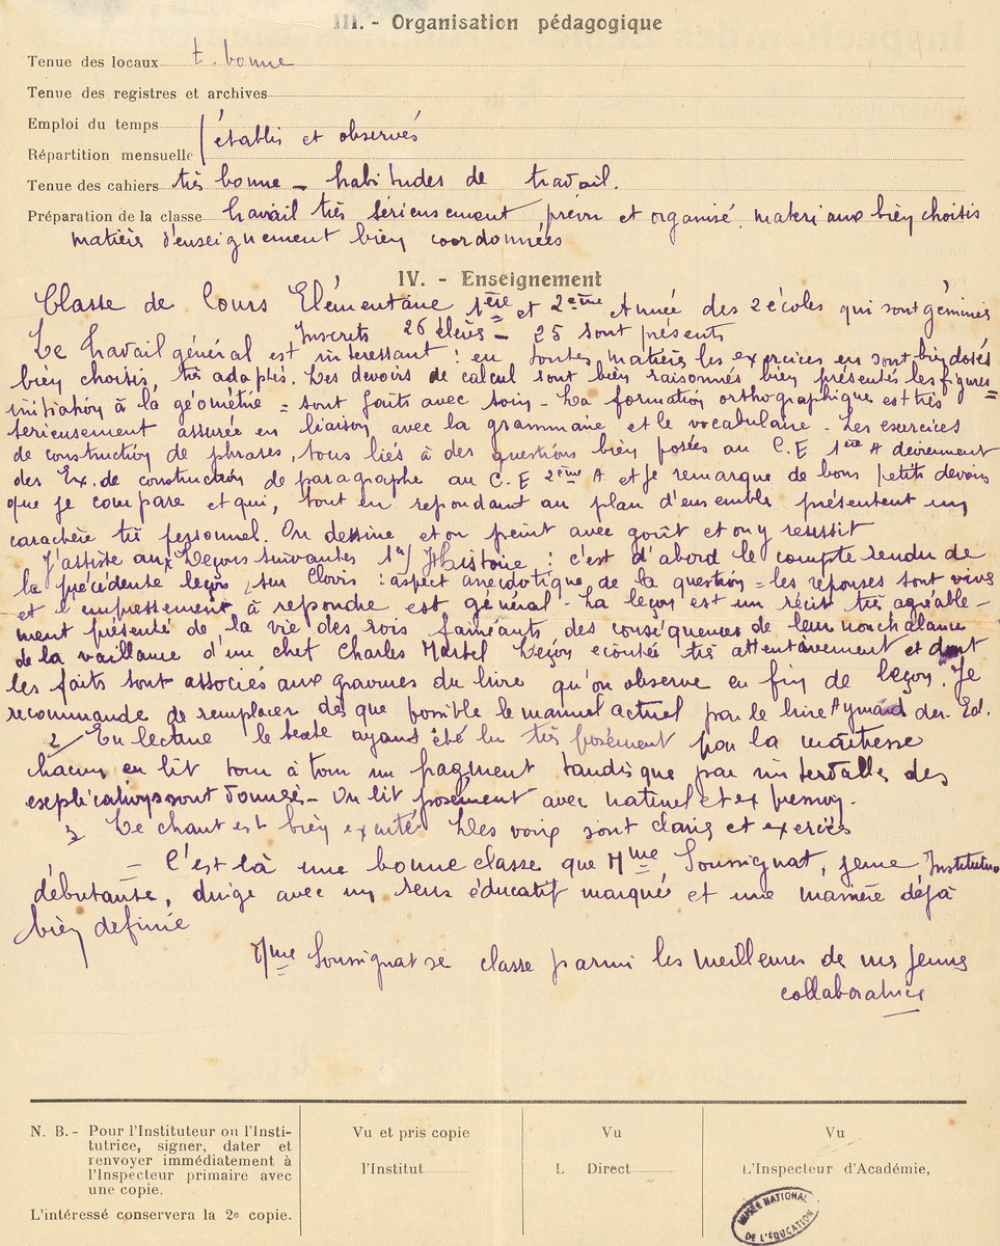 III. - Organisation pédagogique
Tenue des locaux t. bonne
Tenue des registres et archives
Emploi du temps
établis et observés
Répartition mensuelle
Tenue des cahiers très bonne - habitudes de travail.
Préparation de la classe travail très sérieusement prévu et organisé. materiaux bien choisis
matières d'enseignement bien coordonnées
IV. - Enseignement
Classe de Cours Elémentaire 1ère et 2ème Année des 2 écoles qui sont géminées
Inscrits 26 élèves - 25 sont présents
Le travail général est interessant : en toutes matières les exercices en sont bien dosés
bien choisis, très adaptés. Les devoirs de calcul sont bien raisonnés bien présentés les figures =
initiation à la géométrie = sont faits avec soin - La formation orthographique est très
serieusement assurée en liaison avec la grammaire et le vocabulaire. Les exercices
de construction de phrases, tous liés à des questions bien posées au C.E 1ère A deviennent
des Ex. de construction de paragraphe au C.E 2ème A et je remarque de bons petits devoirs
que je compare et qui, tout en repondant au plan d'ensemble présentent un
caractère très personnel. On dessine et on peint avec goût et on y reussit
J'assiste aux Leçons suivantes 1°/ Histoire : c'est d'abord le compte rendu de
la précédente leçon, sur Clovis : aspect anecdotique de la question = les réponses sont vives
et l'empressement à repondre est général - La leçon est un récit très agréable-
ment présenté de la vie des rois fainéants, des conséquences de leur nonchalance
de la vaillance d'un chef Charles Martel Leçon ecoutée très attentivement et dont
les faits sont associés aux gravures du livre qu'on observe en fin de leçon. Je
recommande de remplacer dès que possible le manuel actuel par le livre Aymard der. Ed.
2/ En lecture le texte ayant été lu très posément par la maîtresse
chacun en lit tour à tour un fragment tandis que par intervalles des
explications sont données - On lit posement avec naturel et expression.
3 Le chant est bien exécuté Les voix sont claires et exercées
- C'est là une bonne classe que Mme Soussignat, jeune Institutrice
débutante, dirige avec un sens éducatif marqué et une manière déjà
bien definie
Mme Soussignat se classe parmi les meilleures de nos jeunes
collaboratrices
N. B.- Pour l'Instituteur ou l'Insti-
tutrice, signer, dater et
renvoyer immédiatement à
l'Inspecteur primaire avec
une copie.
L'intéressé conservera la 2e copie.
Vu et pris copie
l'Institut
Vu
L Direct
Vu
L'Inspecteur d'Académie,
MUSÉE NATIONAL
DE L'ÉDUCATION